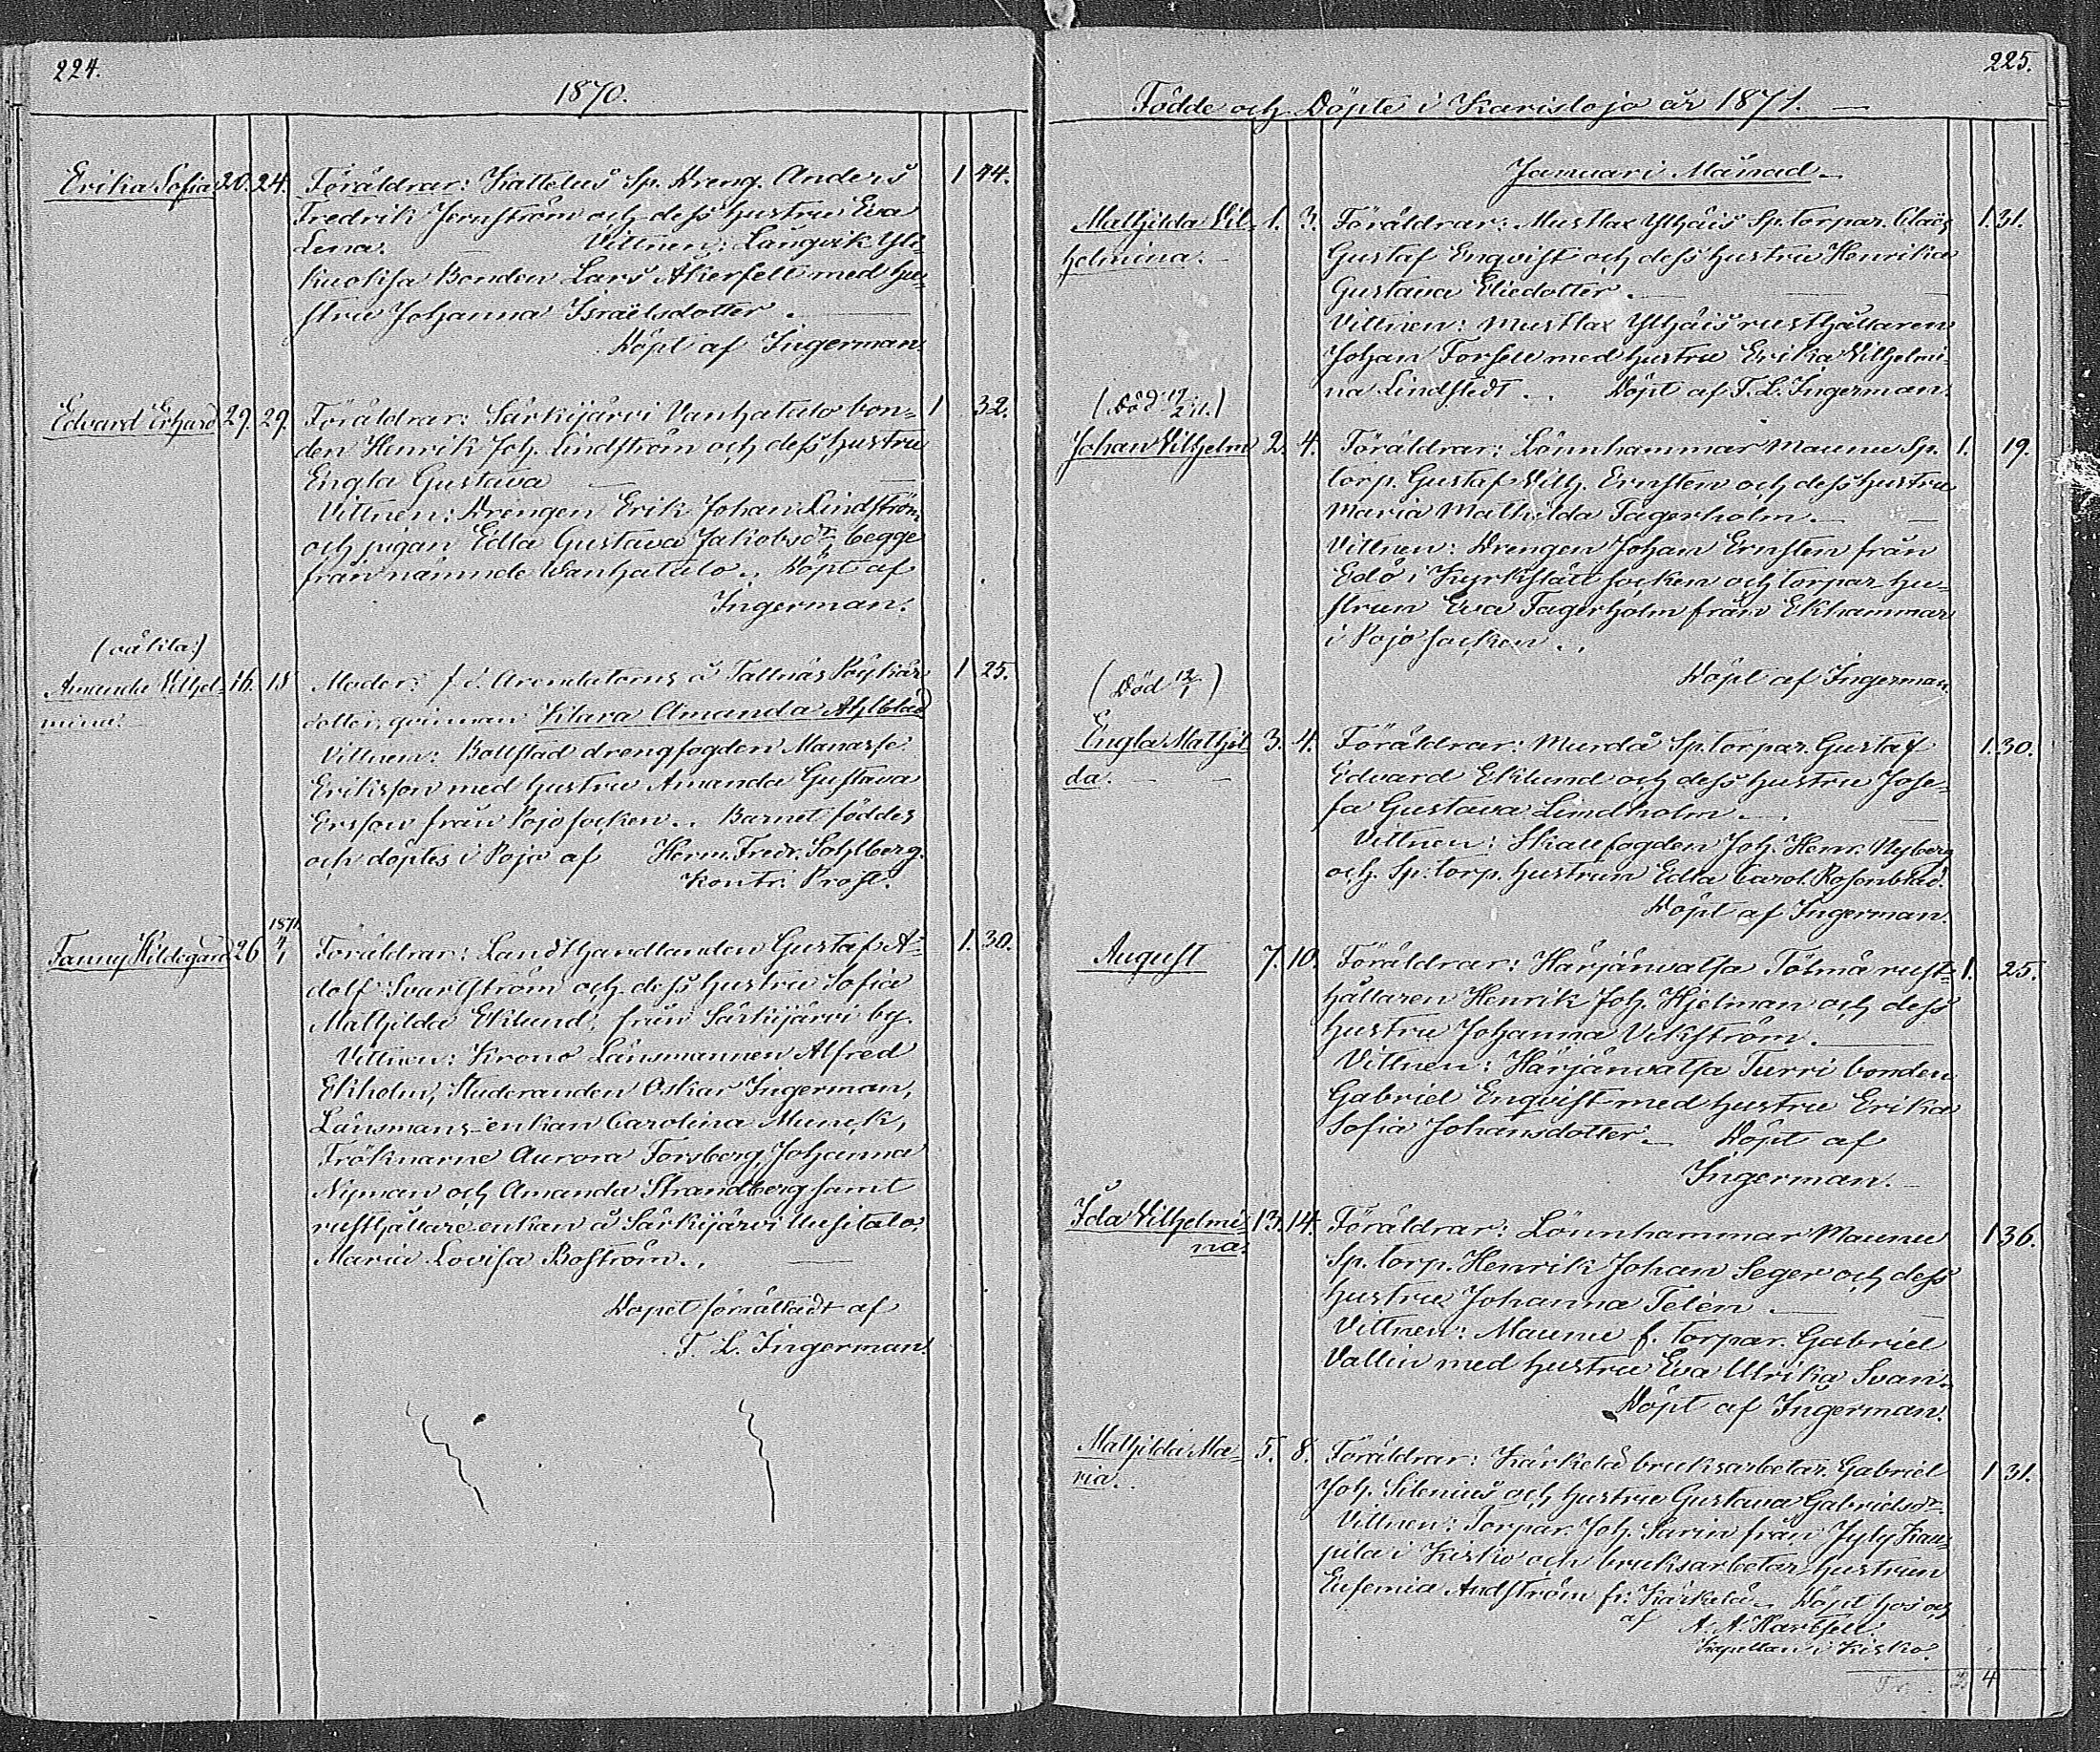 224.
1870.
Erika Sofia 20. 24. Föräldrar: Kattelus Sp. Dreng. Anders 1 44.
Fredrik Jernström och dess hustru Eva
Lena. Vittnen: Långvik Yli
kuoksa Bonden Lars Åkerfelt med hu-
stru Johanna Israëlsdotter.
Döpt af Ingerman.
Edvard Erhard 29. 29. Föräldrar: Särkijärvi Vanhatalo bon- 1 32.
den Henrik Joh. Lindström och dess hustru
Engla Gustava
Vittnen: Drengen Erik Johan Lindström
och pigan Edla Gustava Jakobsdr begge
från nämnde Wanhatalo. Döpt af
Ingerman.
(oäkta:)
Amanda Vilhel- 16. 18 Moder: f.d. Arendatorns å Tallnäs 1. 25.
mina. dotter, qvinnan Klara Amanda Ahlblad
Vittnen: Bollstad drengfogden Manasse
Eriksson med hustru Amanda Gustava
Ersson från Pojo socken. Barnet föddes
och döptes i Pojo af Herm. Fredr. Sahlberg.
Kontr. Prost.
1871
Fanny Hildegard 26 4/1 Föräldrar: Landthandlanden Gustaf A- 1. 30.
dolf Svartström och dess hustru Sofia
Mathilda Eklund, från Särkijärvi by.
Vittnen: Krono Länsmannen Alfred
Ekholm, Studeranden Oskar Ingerman,
Länsmans-enkan Carolina Munck,
Fröknarne Aurora Forsberg, Johanna
Nyman och Amanda Strandberg samt
rusthållare enkan å Särkijärvi Uusitalo,
Maria Lovisa Boström.
Dopet förrättadt af
T. L. Ingerman.
225.
Födde och Döpte i Karislojo år 1871.
Januari Månad
Mathilda Vil- 1. 3. Föräldrar: Mustlax Ylhäis Sp. torpar. Claës 1. 31.
helmina. Gustaf Enqvist och dess hustru Henrika
Gustava Eliedotter.
Vittnen: Mustlax Ylhäis rusthållaren
Johan Forsell med hustru Erika Vilhelmi-
na Lindstedt. Döpt af T. L. Ingerman.
(Död 19/2 71.)
Johan Vilhelm 2. 4. Föräldrar: Lönnhammar Maunu Sp. 1. 19.
torp. Gustaf Vilh. Ernsten och dess hustru
Maria Mathilda Fagerholm.
Vittnen: Drengen Johan Ernsten från
Edö i Kyrkslätt socken och torpar hu-
strun Eva Fagerholm från Ekhammar
i Pojo socken.
(Död 12/1) Döpt af Ingerman.
Engla Mathil- 3. 4. Föräldrar: Murdå Sp. torpar. Gustaf 1. 30.
da. Edvard Eklund och dess hustru Jose-
fa Gustava Lindholm.
Vittnen: Skallfogden Joh. Henr. Nyberg
och Sp. torp. hustrun Edla Carol. Rosenblad.
Döpt af Ingerman.
August 7. 10. Föräldrar: Härjänvatsa Tölmä rust- 1. 25.
hållaren Henrik Joh. Hjelman och dess
hustru Johanna Vikström.
Vittnen: Härjänvatsa Turri bonden
Gabriel Enqvist med hustru Erika
Sofia Johansdotter. Döpt af
Ingerman.
Ida Vilhelmi- 13. 14. Föräldrar: Lönnhammar Maunu 1 36.
na. Sp. torp. Henrik Johan Seger och dess
hustru Johanna Telén.
Vittnen: Maunu f. torpar. Gabriel
Vallin med hustru Eva Ulrika Svan.
Döpt af Ingerman.
Mathilda Ma- 5. 8. Föräldrar: Kärkelä bruksarbetar. Gabriel 1 31.
ria. Joh. Silenius och hustru Gustava Gabrielsdr.
Vittnen: Torpar. Joh. Sarin från Jyly Kau-
pila i Kisko och bruksarbetar hustrun
Eufemia Andström fr. Kärkelä. Döpt hos och
af A. A. Hartsell.
Kapellan i Kisko.